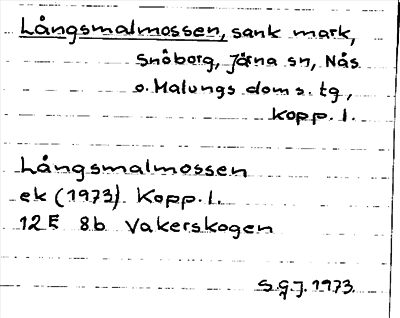 Långsmalmossen, sank mark,
Snöborg, Järna sn, Nås
o. Malungs doms. tg,
Kopp. l.
Långsmalmossen
ek (1973). Kopp. l.
12E 8b Vakerskogen
S.G.J. 1973.